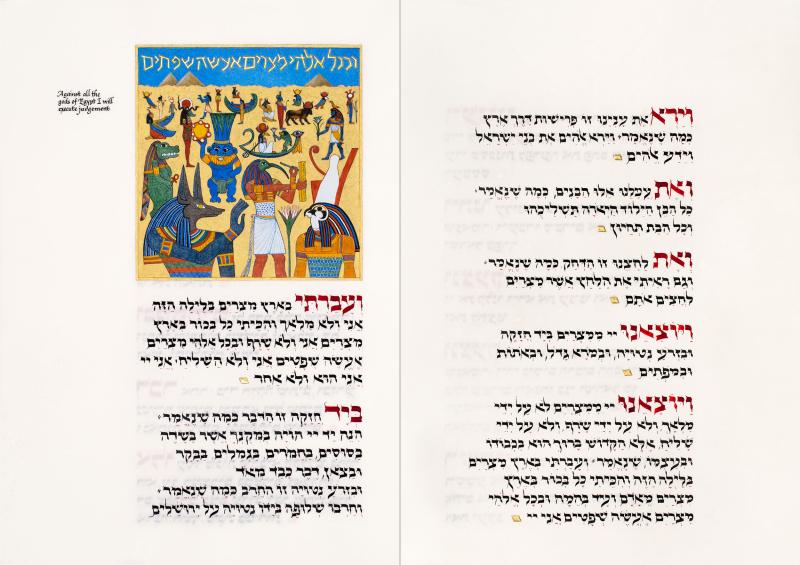 וירא את ענינו זו פרישות דרך ארץ
כמה שנאמר׃ וירא אלהים את בני ישראל
וידע אלהים
ואת עמלנו אלו הבנים, כמה שנאמר׃
כל הבן הילוד היארה תשליכהו
וכל הבת תחיון
ואת לחצנו זו הדחק כמה שנאמר׃
וגם ראיתי את הלחץ אשר מצרים
לחצים אתם
ויוצאנו יי ממצרים ביד חזקה
ובזרע נטויה, ובמרא גדל, ובאתות
ובמפתים
ויוצאנו יי ממצרים לא על ידי
מלאך, ולא על ידי שרף, ולא על ידי
שליח, אלא הקדוש ברוך הוא בכבודו
ובעצמו, שנאמר׃ ועברתי בארץ מצרים
בלילה הזה והכיתי כל בכור בארץ
מצרים מאדם ועד בהמה ובכל אלהי
מצרים אעשה שפטים אני יי
ובכל אלהי מצרים אעשה שפטים
Against all the
gods of Egypt I will
execute judgement
ועברתי בארץ מצרים בלילה הזה
אני ולא מלאך והכיתי כל בכור בארץ
מצרים אני ולא שרף ובכל אלהי מצרים
אעשה שפטים אני ולא השליח׃ אני יי
אני הוא ולא אחר
ביד חזקה זו הדבר כמה שנאמר׃
הנה יד יי הויה במקנך אשר בשדה
בסוסים, בחמרים, בגמלים, בבקר
ובצאן, דבר כבד מאד
ובזרע נטויה זו החרב כמה שנאמר׃
וחרבו שלופה בידו נטויה על ירושלים